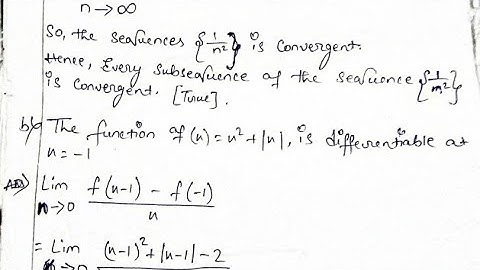 n→∞
So, the seavences {1/n²} is convergent.
Hence, Every subseavence of the seavence {1/n²}
is convergent. [True].
b) The function of (n) = n² + |n|, is differentiable at
n = -1
Lim n→0 f(n-1) - f(-1) / n
= Lim n→0 (n-1)² + |n-1| - 2